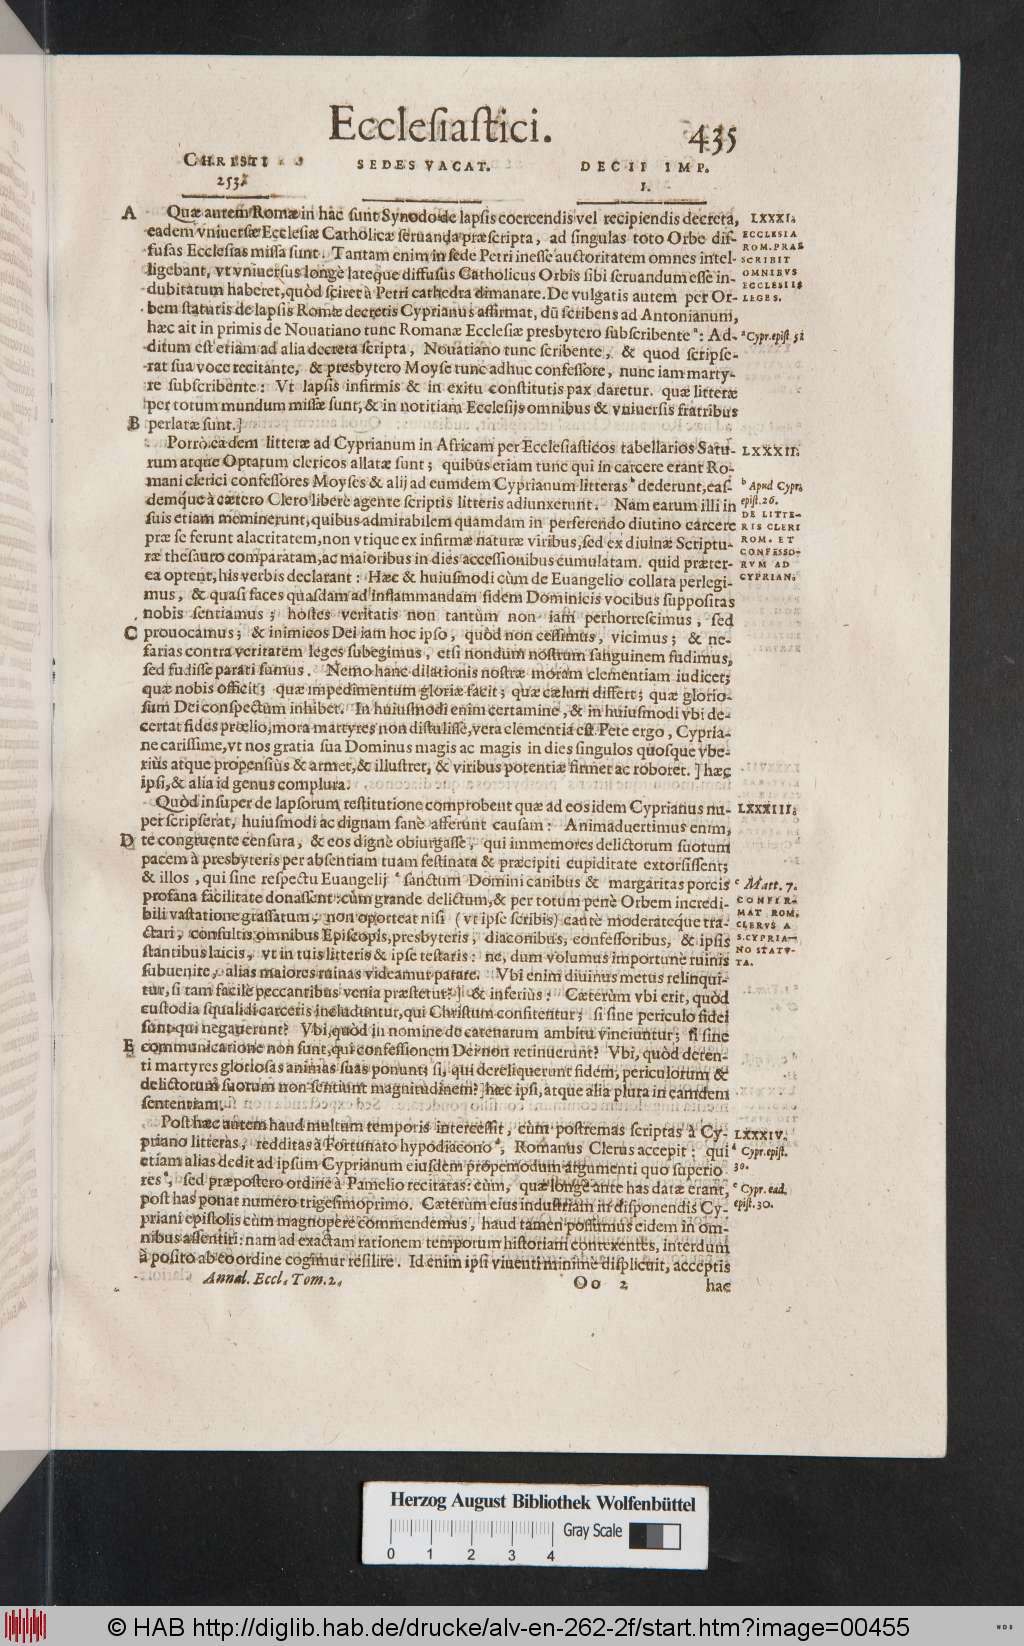 Eccleſiaſtici. 435
CHRISTI SEDES VACAT. DECII IMP.
253. I.
A Quæ autem Romæ in hac ſunt Synodo de lapſis coercendis vel recipiendis decreta, LXXXI.
eadem vniuerſæ Eccleſiæ Catholicæ ſeruanda præſcripta, ad ſingulas toto Orbe diſ- ECCLESIA
fuſas Eccleſias miſſa ſunt. Tantam enim in ſede Petri ineſſe auctoritatem omnes intel- ROM. PRAE
ligebant, vt vniuerſus longè latéque diffuſus Catholicus Orbis ſibi ſeruandum eſſe in- SCRIBIT OMNIBVS
dubitatum haberet, quòd ſciret à Petri cathedra dimanare. De vulgatis autem per Or- ECCLESIIS LEGES.
bem ſtatutis de lapſis Romæ decretis Cyprianus affirmat, dū ſcribens ad Antonianum,
hæc ait in primis de Nouatiano tunc Romanæ Eccleſiæ presbytero ſubſcribente ᵃ: Ad- ᵃ Cypr. epiſt. 52
ditum eſt etiam ad alia decreta ſcripta, Nouatiano tunc ſcribente, & quod ſcripſe-
rat ſua voce recitante, & presbytero Moyſe tunc adhuc confeſſore, nunc iam marty-
re ſubſcribente: Vt lapſis infirmis & in exitu conſtitutis pax daretur. quæ litteræ
per totum mundum miſſæ ſunt, & in notitiam Eccleſijs omnibus & vniuerſis fratribus
B perlatæ ſunt.]
Porrò eædem litteræ ad Cyprianum in Africam per Eccleſiaſticos tabellarios Satu- LXXXII.
rum atque Optatum clericos allatæ ſunt; quibus etiam tunc qui in carcere erant Ro-
mani clerici confeſſores Moyſes & alij ad eumdem Cyprianum litteras ᵇ dederunt, eaſ- ᵇ Apud Cypr.
demque à cætero Clero liberè agente ſcriptis litteris adiunxerunt. Nam earum illi in epiſt. 26.
ſuis etiam meminerunt, quibus admirabilem quamdam in perferendo diutino carcere DE LITTERIS CLERI
præ ſe ferunt alacritatem, non vtique ex infirmæ naturæ viribus, ſed ex diuinæ Scriptu- ROM. ET
ræ theſauro comparatam, ac maioribus in dies acceſſionibus cumulatam. quid præter- CONFESSORVM AD
ea optent, his verbis declarant: Hæc & huiuſmodi cùm de Euangelio collata perlegi- CYPRIAN.
mus, & quaſi faces quaſdam ad inflammandam fidem Dominicis vocibus ſuppoſitas
nobis ſentiamus; hoſtes veritatis non tantùm non iam perhorreſcimus, ſed
C prouocamus; & inimicos Dei iam hoc ipſo, quòd non ceſſimus, vicimus; & ne-
farias contra veritatem leges ſubegimus, etſi nondum noſtrum ſanguinem fudimus,
ſed fudiſſe parati ſumus. Nemo hanc dilationis noſtræ moram clementiam iudicet;
quæ nobis officit; quæ impedimentum gloriæ facit; quæ cælum differt; quæ glorio-
ſum Dei conſpectum inhibet. In huiuſmodi enim certamine, & in huiuſmodi vbi de-
certat fides prœlio, mora martyres non diſtuliſſe, vera clementia eſt. Pete ergo, Cypria-
ne cariſſime, vt nos gratia ſua Dominus magis ac magis in dies ſingulos quoſque vbe-
riùs atque propenſiùs & armet, & illuſtret, & viribus potentiæ firmet ac roboret.] hæc
ipſi, & alia id genus complura.
Quòd inſuper de lapſorum reſtitutione comprobent quæ ad eos idem Cyprianus nu- LXXXIII.
per ſcripſerat, huiuſmodi ac dignam ſanè afferunt cauſam: Animaduertimus enim,
D te congruente cenſura, & eos dignè obiurgaſſe, qui immemores delictorum ſuorum
pacem à presbyteris per abſentiam tuam feſtinata & præcipiti cupiditate extorſiſſent;
& illos, qui ſine reſpectu Euangelij ᶜ ſanctum Domini canibus & margaritas porcis ᶜ Matt. 7.
profana facilitate donaſſent: cùm grande delictum, & per totum penè Orbem incredi- CONFIRMAT ROM.
bili vaſtatione graſſatum, non oporteat niſi (vt ipſe ſcribis) cautè moderatéque tra- CLERVS A
ctari, conſultis omnibus Epiſcopis, presbyteris, diaconibus, confeſſoribus, & ipſis S. CYPRIANO STATVTA.
ſtantibus laicis, vt in tuis litteris & ipſe teſtaris: ne, dum volumus importunè ruinis
ſubuenire, alias maiores ruinas videamur parare. Vbi enim diuinus metus relinqui-
tur, ſi tam facilè peccantibus venia præſtetur?] & inferiùs: Cæterùm vbi erit, quòd
cuſtodia ſqualidi carceris includuntur, qui Chriſtum confitentur; ſi ſine periculo fidei
ſunt qui negauerunt? Vbi, quòd in nomine Dei catenarum ambitu vinciuntur; ſi ſine
E communicatione non ſunt, qui confeſſionem Dei non retinuerunt? Vbi, quòd deten-
ti martyres glorioſas animas ſuas ponunt; ſi, qui dereliquerunt fidem, periculorum &
delictorum ſuorum non ſentiunt magnitudinem?] hæc ipſi, atque alia plura in eamdem
ſententiam.
Poſt hæc autem haud multum temporis interceſſit, cùm poſtremas ſcriptas à Cy- LXXXIV.
priano litteras, redditas à Fortunato hypodiacono ᵈ, Romanus Clerus accepit: qui ᵈ Cypr. epiſt.
etiam alias dedit ad ipſum Cyprianum eiuſdem propemodum argumenti quo ſuperio 30.
res ᵉ, ſed præpoſtero ordine à Pamelio recitatas: cùm, quæ longè ante has datæ erant, ᵉ Cypr. ead.
poſt has ponat numero trigeſimoprimo. Cæterùm eius induſtriam in diſponendis Cy- epiſt. 30.
priani epiſtolis cùm magnopere commendemus, haud tamen poſſumus eidem in om-
nibus aſſentiri: nam ad exactam rationem temporum hiſtoriam contexentes, interdum
à poſito ab eo ordine cogimur reſilire. Id enim ipſi viuenti minimè diſplicuit, acceptis
Annal. Eccl. Tom. 2. Oo 2 hac
Herzog August Bibliothek Wolfenbüttel
Gray Scale
0 1 2 3 4
© HAB http://diglib.hab.de/drucke/alv-en-262-2f/start.htm?image=00455